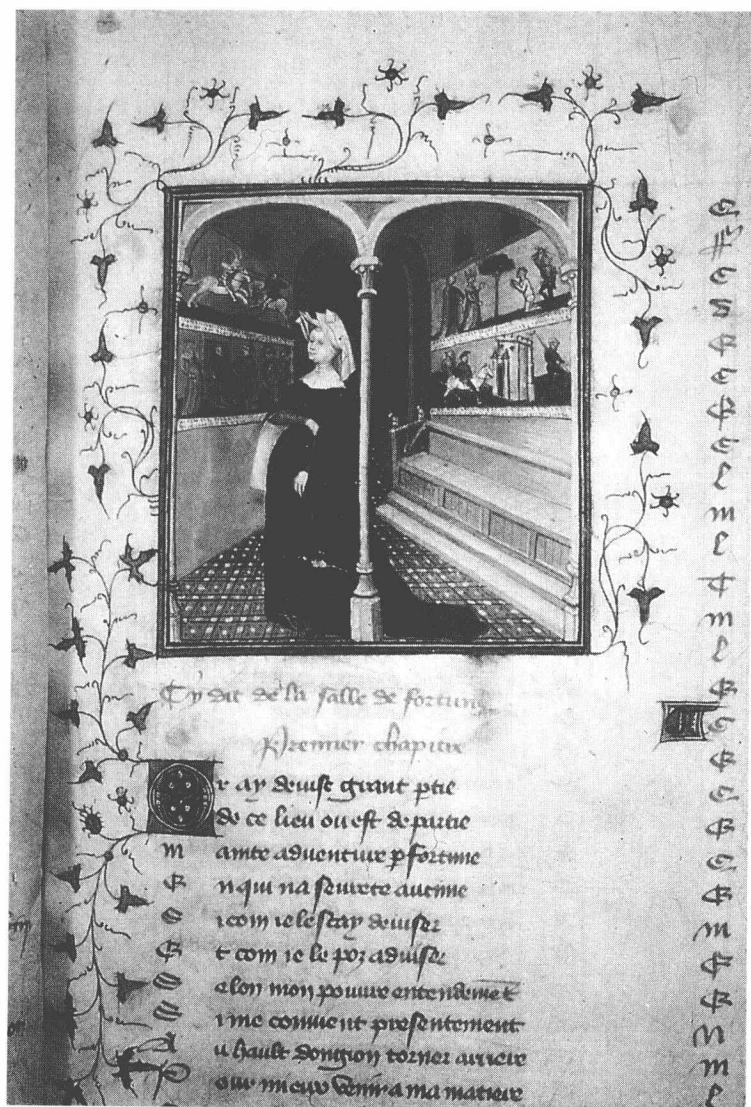 Cy dit de la salle de fortune
Premier chapitre
Or ay devise grant ptie
de ce lieu ou est departie
mainte adventure p fortune
En qui na seurete aucune
Si com ie le scay deviser
Et com ie le poz adviser
Selon mon povvre entendemēt
Si me convient presentement
Au hault dongion torner arriere
Pour mieux venir a ma matiere
E
E
S
E
E
E
E
L
M
L
C
M
L
E
E
E
E
E
E
E
M
E
E
M
M
L